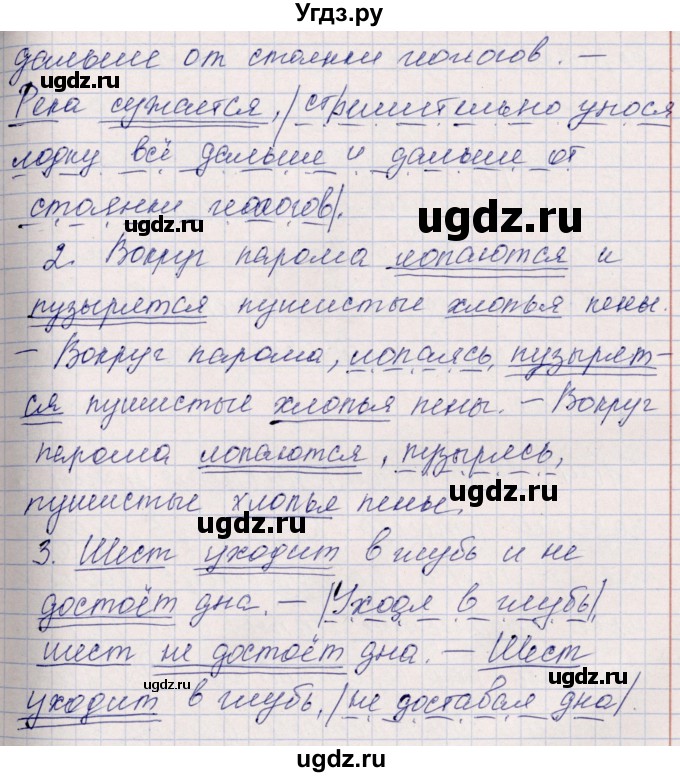 Угдз.ру
дальше от стоянки геологов. –
ugdz.ru
ugdz.ru
Река сужается, /стремительно унося
лодку всё дальше и дальше от
стоянки геологов/.
ugdz.ru
ugdz.ru
2. Вокруг парома лопаются и
пузырятся пушистые хлопья пены.
– Вокруг парома, лопаясь, пузырят-
ugdz.ru
ся пушистые хлопья пены. – Вокруг
парома лопаются, пузырясь,
пушистые хлопья пены.
ugdz.ru
ugdz.ru
3. Шест уходит в глубь и не
достоёт дна. – /Уходя в глубь/,
шест не достоёт дна. – Шест
ugdz.ru
уходит в глубь, /не доставая дна/.
ugdz.ru